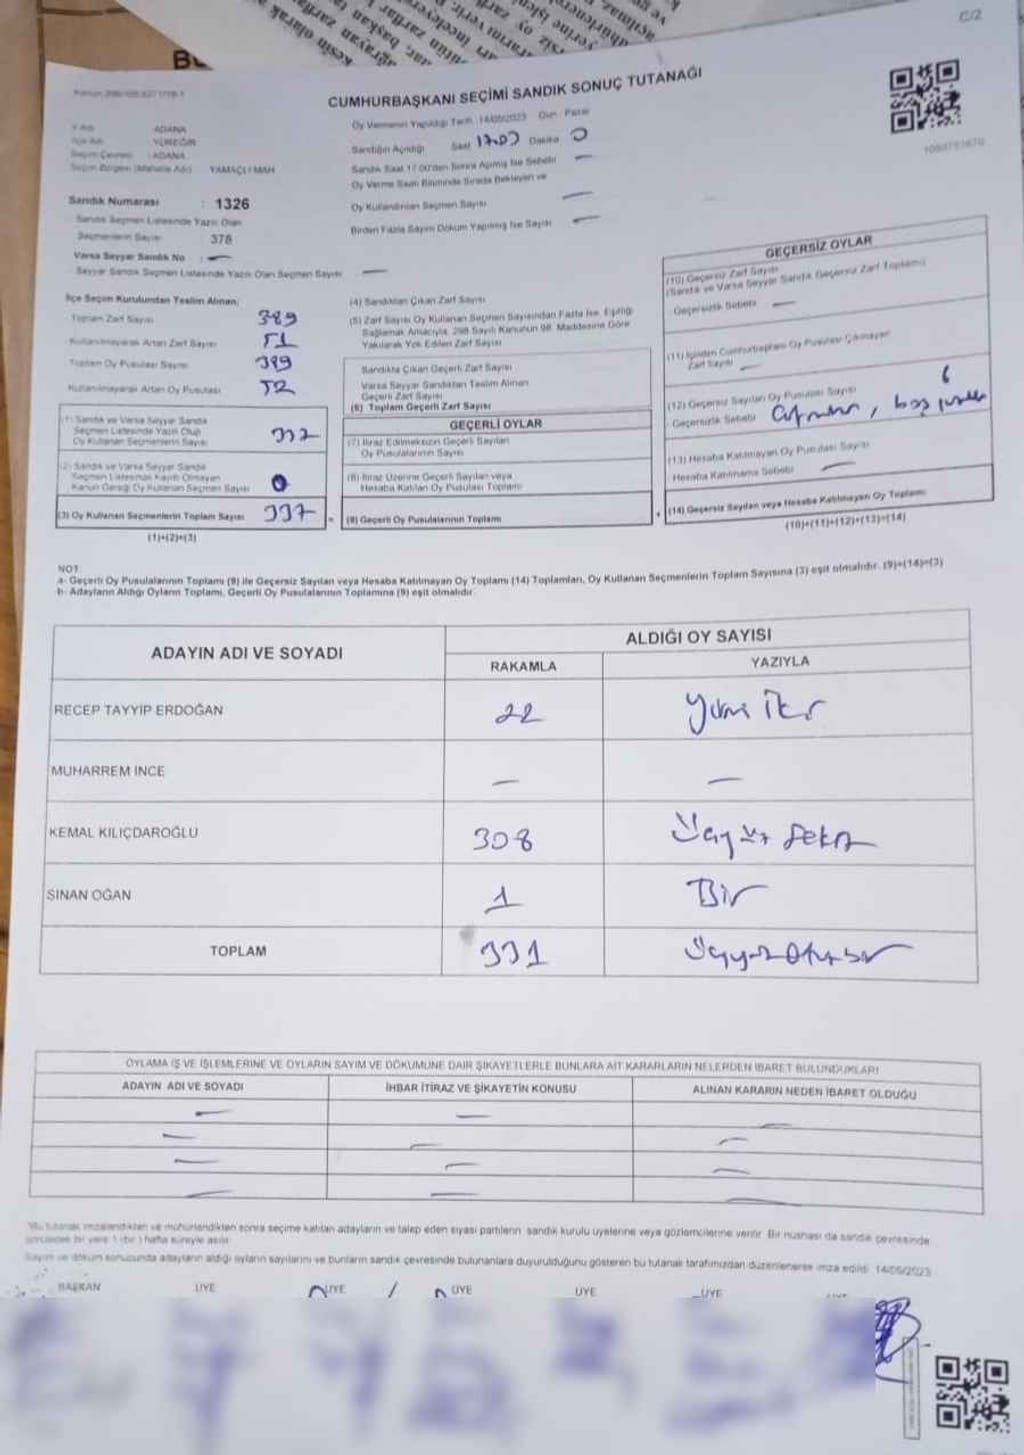 C/2
CUMHURBAŞKANI SEÇİMİ SANDIK SONUÇ TUTANAĞI
Oy Vermenin Yapıldığı Tarih 14/05/2023 Gün Pazar
Sandığın Açıldığı Saat 17:03 Dakika 0
ADANA
YÜREĞİR
ADANA
Seçim Bölgesi (Mahalle Adı) YAMAÇLI MAH
Sandık Saat 17:00'den Sonra Açılmış İse Sebebi —
Oy Verme Saati Bitiminde Sırada Bekleyen ve
Oy Kullandırılan Seçmen Sayısı —
Birden Fazla Sayım Döküm Yapılmış İse Sayısı —
Sandık Numarası : 1326
Sandık Seçmen Listesinde Yazılı Olan
Seçmenlerin Sayısı 378
Varsa Seyyar Sandık No : —
Seyyar Sandık Seçmen Listesinde Yazılı Olan Seçmen Sayısı —
İlçe Seçim Kurulundan Teslim Alınan;
Toplam Zarf Sayısı 389
Kullanılmayarak Artan Zarf Sayısı 51
Toplam Oy Pusulası Sayısı 389
Kullanılmayarak Artan Oy Pusulası 52
(1) Sandık ve Varsa Seyyar Sandık
Seçmen Listesinde Yazılı Olup
Oy Kullanan Seçmenlerin Sayısı 337
(2) Sandık ve Varsa Seyyar Sandık
Seçmen Listesinde Kayıtlı Olmayan
Kanun Gereği Oy Kullanan Seçmen Sayısı 0
(3) Oy Kullanan Seçmenlerin Toplam Sayısı 337
(1)+(2)=(3)
(4) Sandıktan Çıkan Zarf Sayısı
(5) Zarf Sayısı Oy Kullanan Seçmen Sayısından Fazla İse, Eşitliği
Sağlamak Amacıyla, 298 Sayılı Kanunun 98. Maddesine Göre
Yakılarak Yok Edilen Zarf Sayısı
Sandıkta Çıkan Geçerli Zarf Sayısı
Varsa Seyyar Sandıktan Teslim Alınan
Geçerli Zarf Sayısı
(6) Toplam Geçerli Zarf Sayısı
GEÇERLİ OYLAR
(7) İtiraz Edilmeksizin Geçerli Sayılan
Oy Pusulalarının Sayısı
(8) İtiraz Üzerine Geçerli Sayılan veya
Hesaba Katılan Oy Pusulası Toplamı
= (9) Geçerli Oy Pusulalarının Toplamı
GEÇERSİZ OYLAR
(10) Geçersiz Zarf Sayısı
(Sandık ve Varsa Seyyar Sandık Geçersiz Zarf Toplamı)
Geçersizlik Sebebi —
(11) İçinden Cumhurbaşkanı Oy Pusulası Çıkmayan
Zarf Sayısı —
(12) Geçersiz Sayılan Oy Pusulası Sayısı 6
Geçersizlik Sebebi
(13) Hesaba Katılmayan Oy Pusulası Sayısı
Hesaba Katılmama Sebebi —
+ (14) Geçersiz Sayılan veya Hesaba Katılmayan Oy Toplamı
(10)+(11)+(12)+(13)=(14)
NOT:
a- Geçerli Oy Pusulalarının Toplamı (9) ile Geçersiz Sayılan veya Hesaba Katılmayan Oy Toplamı (14) Toplamları, Oy Kullanan Seçmenlerin Toplam Sayısına (3) eşit olmalıdır. (9)+(14)=(3)
b- Adayların Aldığı Oyların Toplamı, Geçerli Oy Pusulalarının Toplamına (9) eşit olmalıdır.
ADAYIN ADI VE SOYADI
ALDIĞI OY SAYISI
RAKAMLA YAZIYLA
RECEP TAYYİP ERDOĞAN 22 Yirmi İki
MUHARREM İNCE — —
KEMAL KILIÇDAROĞLU 308 Üçyüz Sekiz
SİNAN OĞAN 1 Bir
TOPLAM 331 Üçyüzotuzbir
OYLAMA İŞ VE İŞLEMLERİNE VE OYLARIN SAYIM VE DÖKÜMÜNE DAİR ŞİKAYETLERLE BUNLARA AİT KARARLARIN NELERDEN İBARET BULUNDUKLARI
ADAYIN ADI VE SOYADI İHBAR İTİRAZ VE ŞİKAYETİN KONUSU ALINAN KARARIN NEDEN İBARET OLDUĞU
— — —
— — —
— — —
— — —
Bu tutanak imzalandıktan ve mühürlendikten sonra seçime katılan adayların ve talep eden siyasi partilerin sandık kurulu üyelerine veya gözlemcilerine verilir. Bir nüshası da sandık çevresinde
görülecek bir yere 1 (bir) hafta süreyle asılır.
Sayım ve döküm sonucunda adayların aldığı oyların sayılarını ve bunların sandık çevresinde bulunanlara duyurulduğunu gösteren bu tutanak tarafımızdan düzenlenerek imza edildi. 14/05/2023
BAŞKAN ÜYE ÜYE ÜYE ÜYE ÜYE